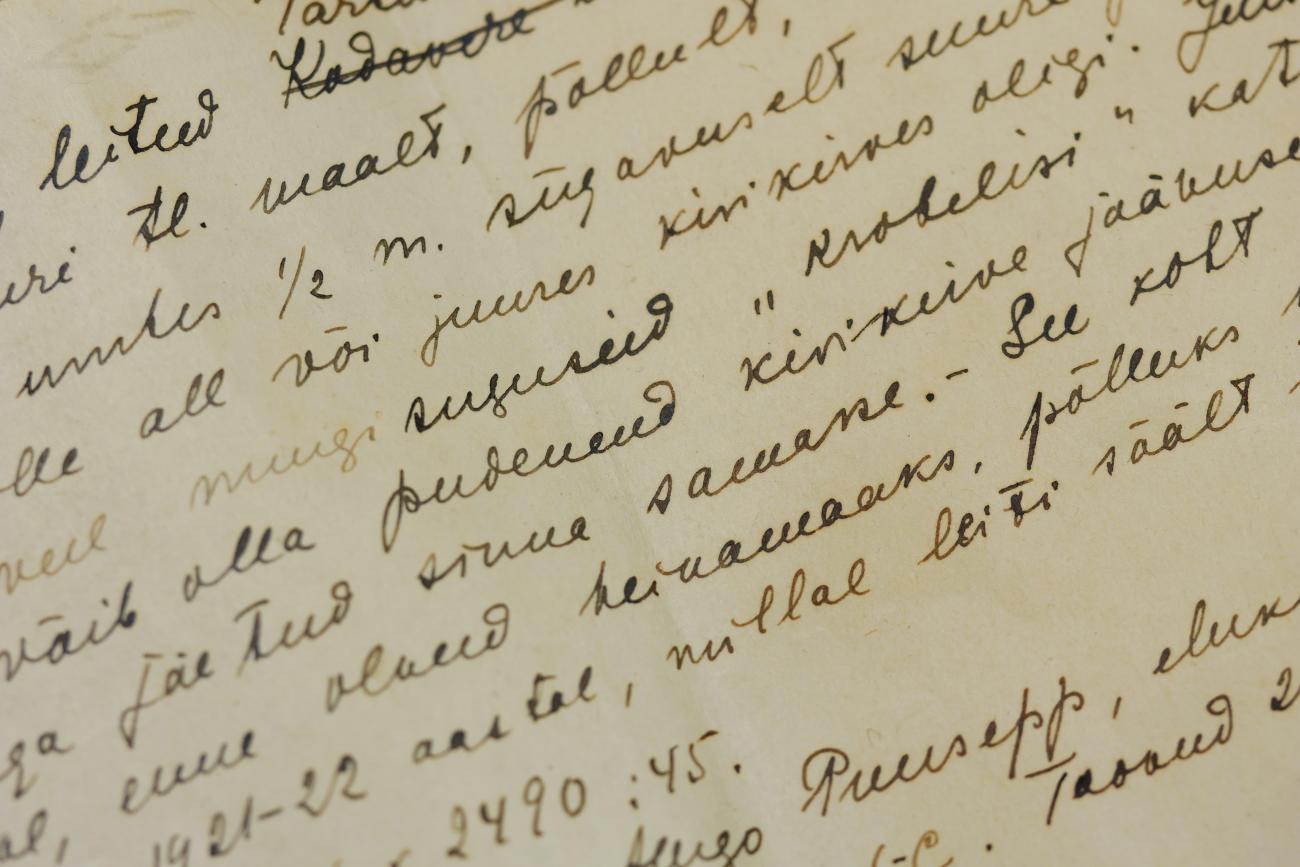 leitud Kodavere
tl. maalt, põllult,
umbes 1/2 m. sügavuselt suure
all või juures kivikirves oligi.
veel mingi suguseid "krobelisi" kat
võib olla pudenend kivikirve jäävuse
jäetud sinna samasse.- See koht
enne olnud heinamaaks, põlluks
1921-22 aastal, millal leiti säält
2490:45.
Hugo Puusepp, eluk
Toonud 2